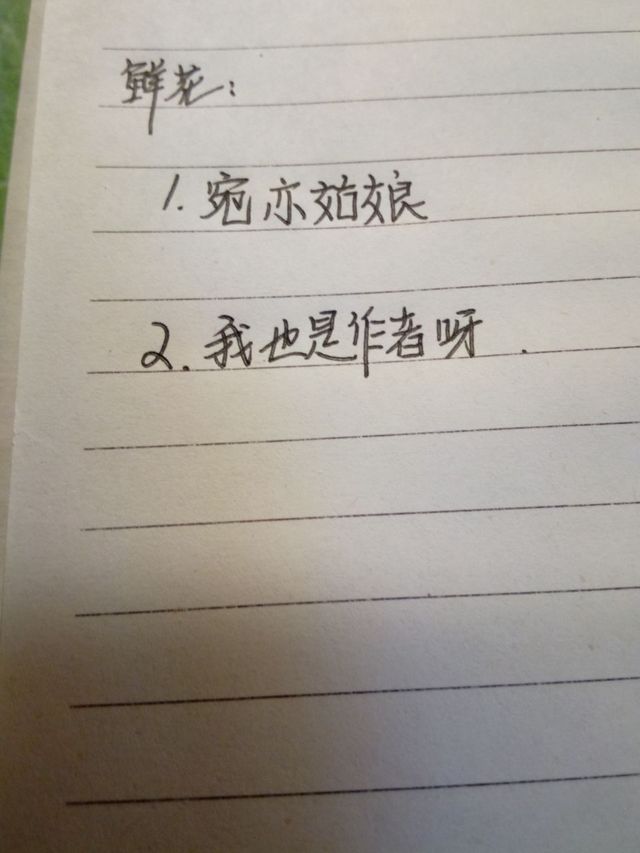 鲜花：
1. 宛亦姑娘
2. 我也是作者呀.